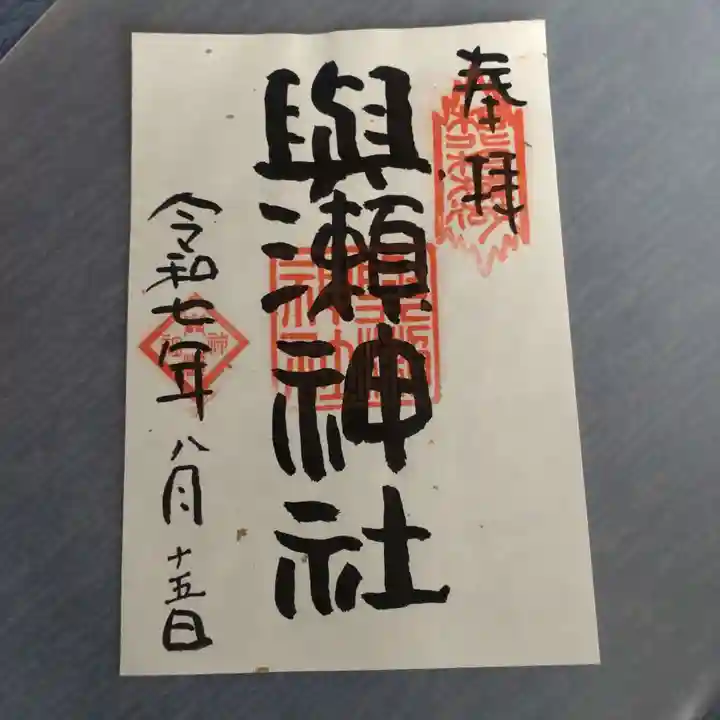 奉拝
與瀬神社
令和七年八月十五日